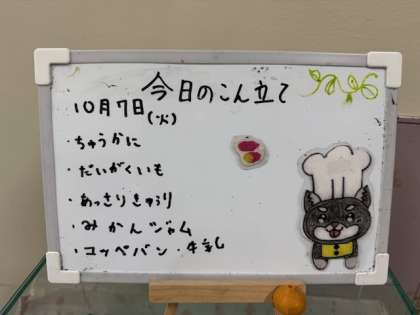 今日のこん立て
10月7日(火)
・ちゅうかに
・だいがくいも
・あっさりきゅうり
・みかんジャム
・コッペパン・牛乳